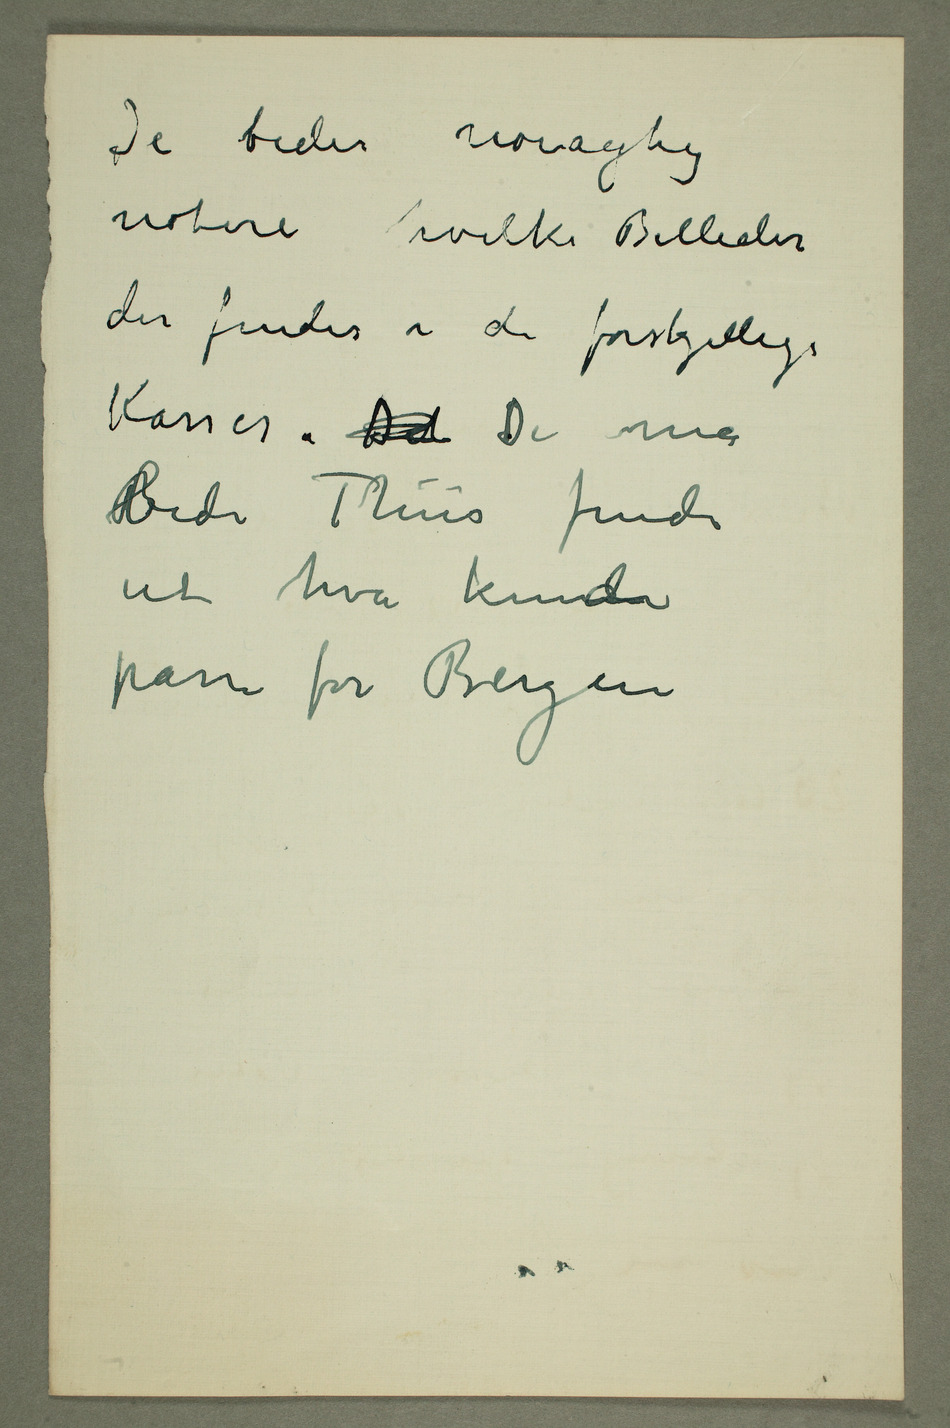 De beder nöiagtig
notere hvilke Billeder
der findes i de forskjellige
Kasser. De må
Bede Thiis finde
ut hva kunde
passe for Bergen